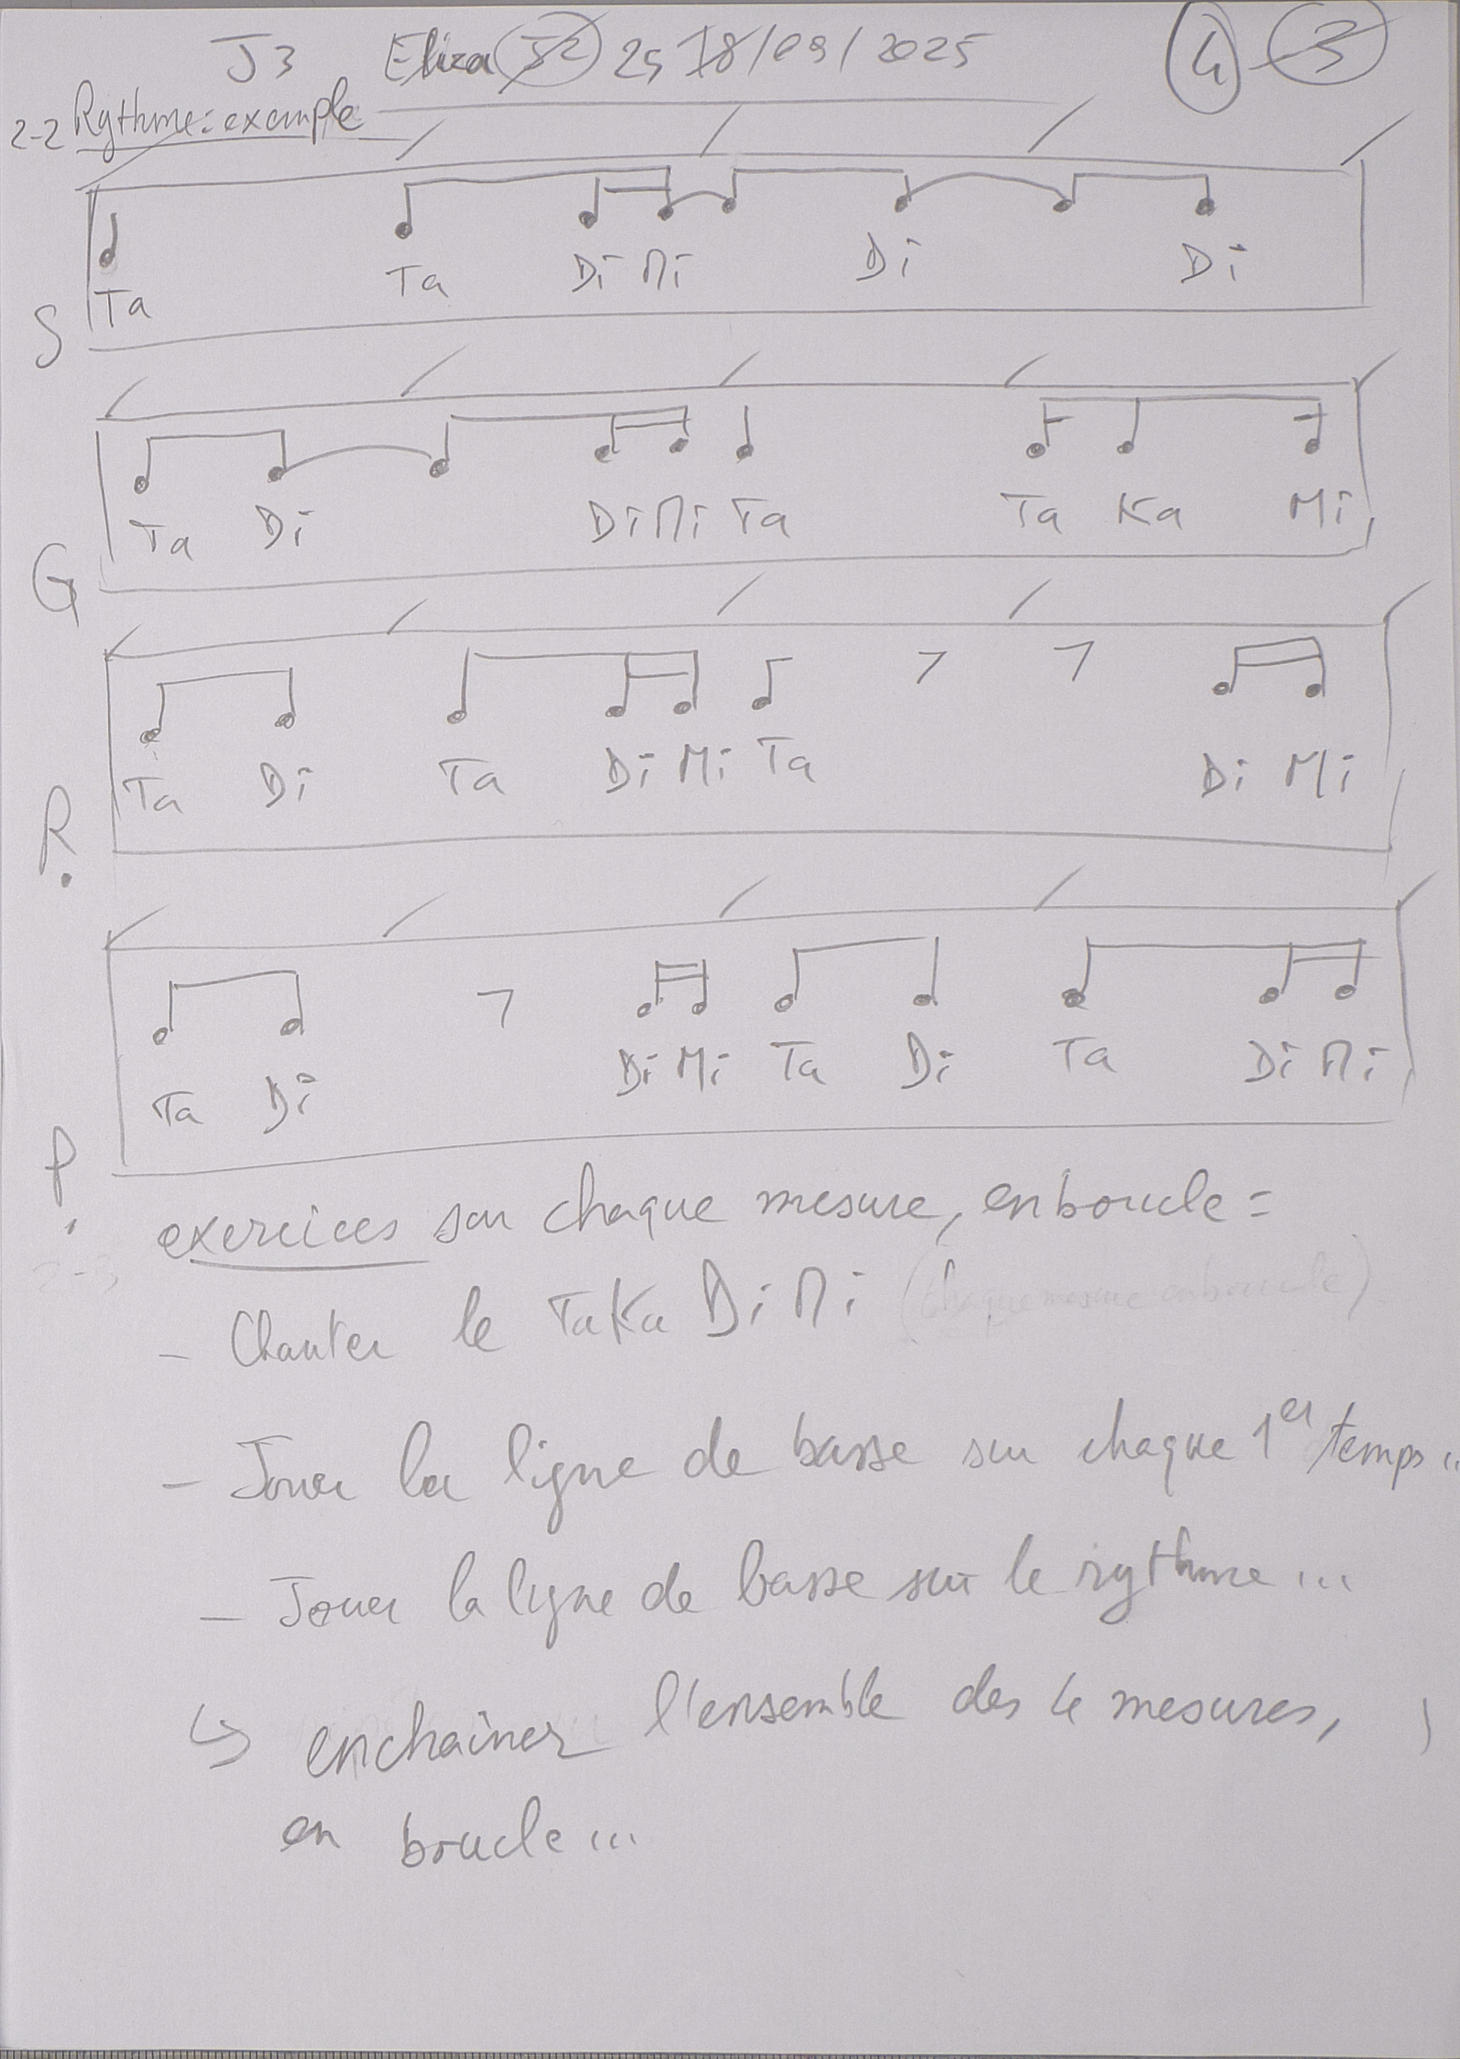 J3 Eliza J2 25 18/09/2025 4 3
2-2 Rythme: example
Ta Ta Di Mi Di Di
S
Ta Di Di Mi Ta Ta Ka Mi
G
Ta Di Ta Di Mi Ta Di Mi
R.
Ta Di Di Mi Ta Di Ta Di Mi
P.
exercices sur chaque mesure, en boucle =
2-3
- Chanter le TaKa Di Mi (chaque mesure en boucle)
- Jouer la ligne de basse sur chaque 1er temps..
- Jouer la ligne de basse sur le rythme ...
↳ enchaîner l'ensemble des 4 mesures,
en boucle ...